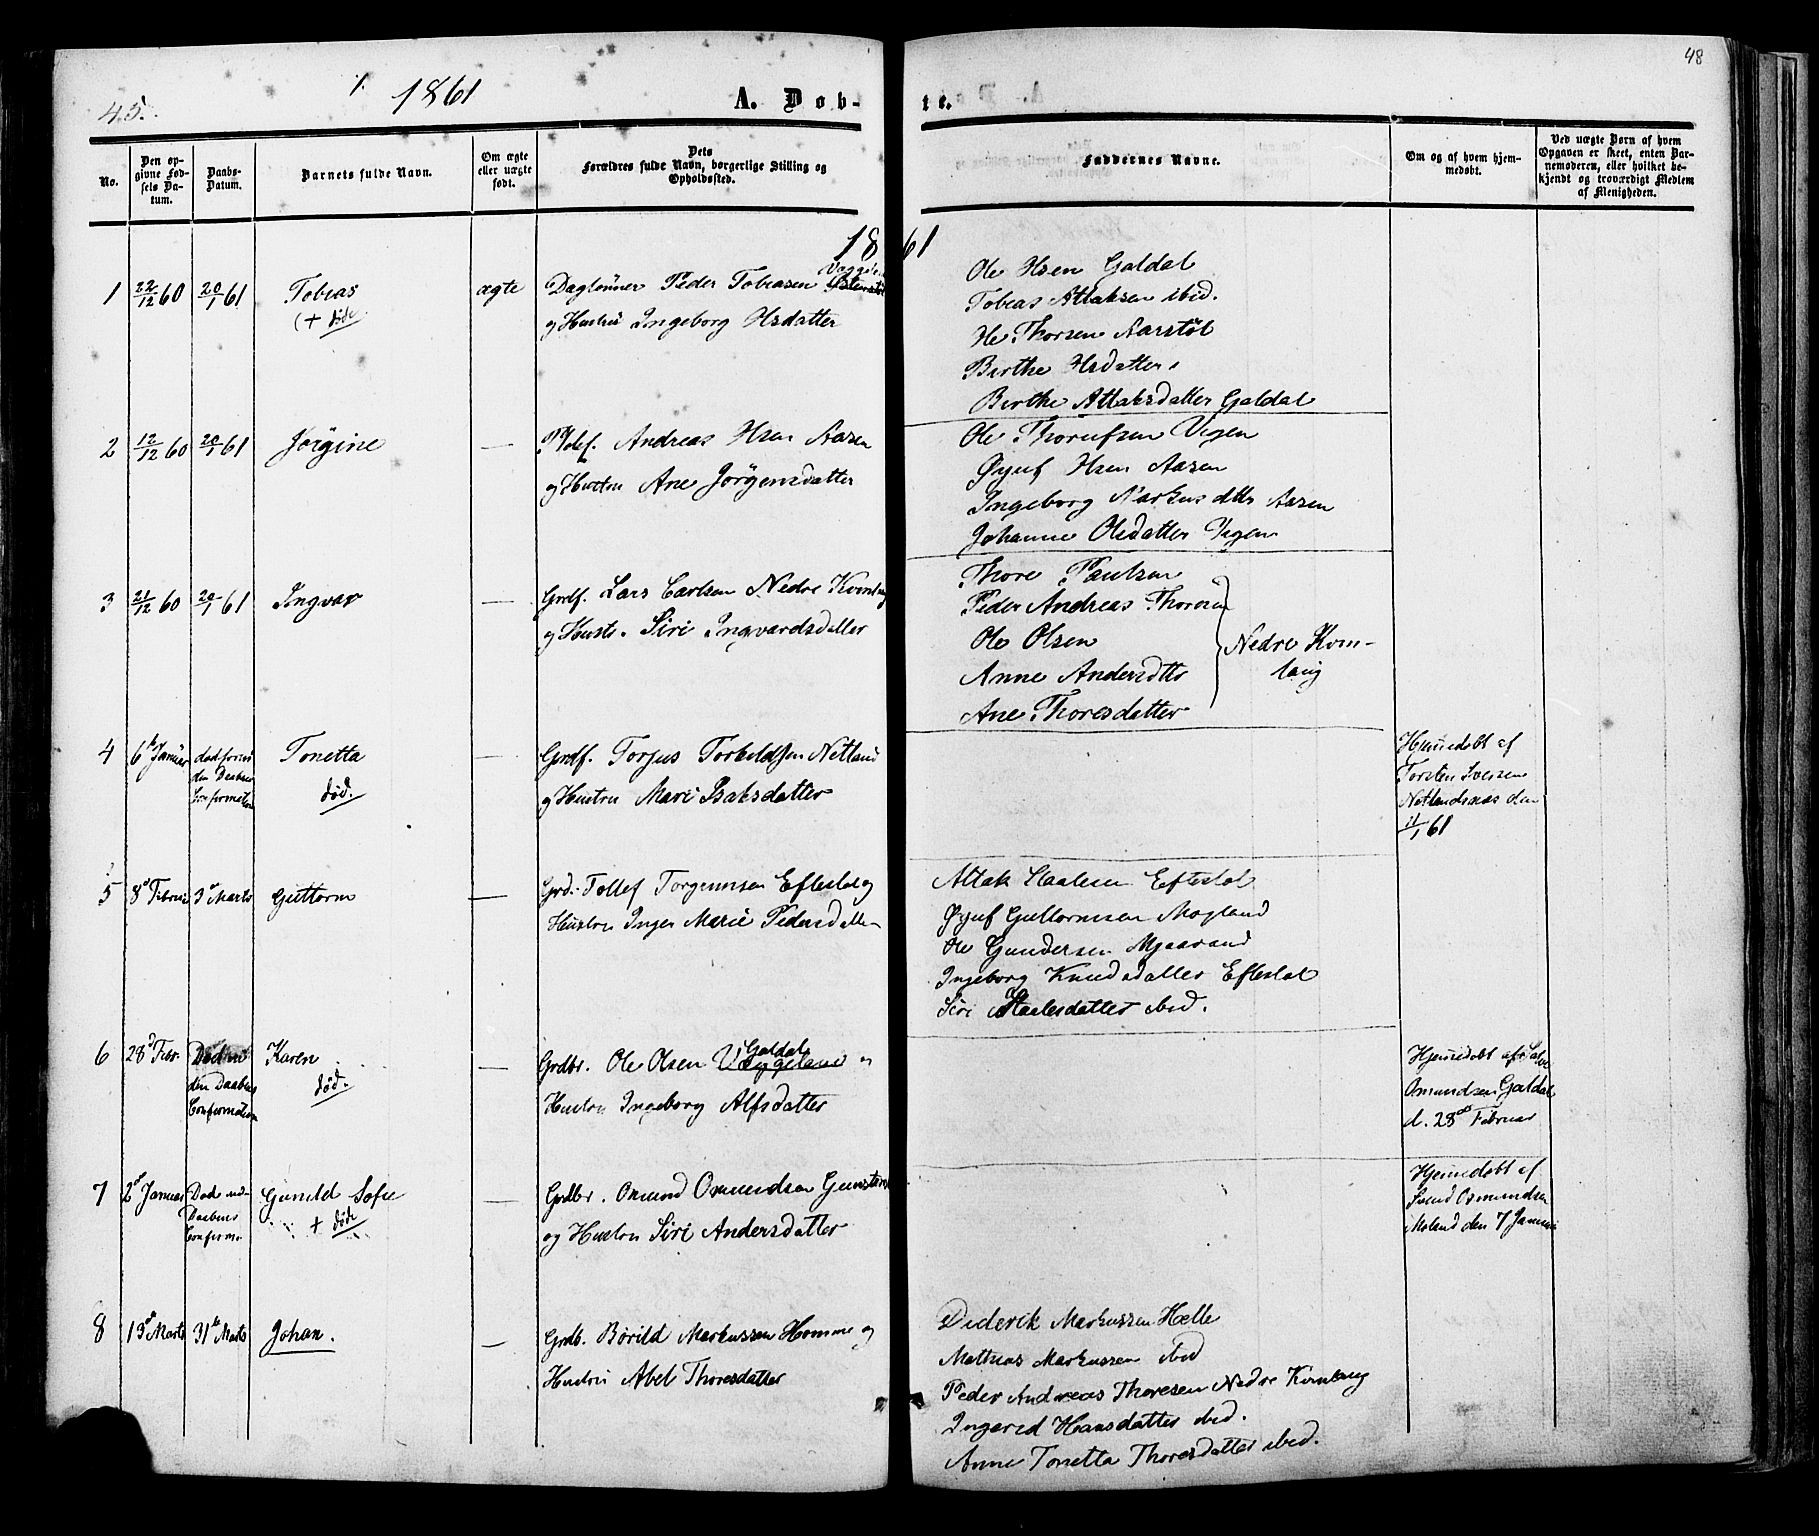 45.
1861
A. Døb-
te.
48
No.
Den op-
givne Fød-
sels Da-
tum.
Daabs-
Datum.
Barnets fulde Navn.
Om ægte
eller uægte
født.
Dets
Forældres fulde Navn, borgerlige Stilling og
Opholdssted.
Faddernes Navne.
Om og af hvem hjem-
medøbt.
Ved uægte Børn af hvem
Opgaven er skeet, enten Bar-
nemoderen, eller hvilket be-
kjendt og troværdigt Medlem
af Menigheden.
1861
1 22/12 60 20/1 61 Tobias ægte Daglønner Peder Tobiasen
(+ døde
og Hustru Ingeborg Olsdatter
Ole Olsen Galdal
Tobias Attaksen ibid.
Ole Thorsen Aarstøl
Birthe Olsdatter
Birthe Attaksdatter Galdal
2 12/12 60 20/1 61 Jørgine — Andreas Olsen Aasen
og Hustru Ane Jörgensdatter
Ole Thorufsen Vegen
Øyuf Olsen Aasen
Ingeborg Markusdtter Aasen
Johanne Olsdatter Vegen
3 21/12 60 20/1 61 Ingvar — Grdf. Lars Carlsen Nedre Kvinlog
og Hustr. Siri Ingvardsdatter
Thore Paulsen
Peder Andreas Thoresen
Ole Olsen
Anne Andersdtter
Ane Thoresdatter
Nedre Kvin-
laug
4 6te Januar død forind
den Daabens
Confirmation
Tonetta
død.
— Grdf. Torjus Torkildsen Netland
og Hustru Mari Isaksdatter
Hjemedøbt af
Torsten Svensen
Netlandsnæs den
11/1 61
5 8de Februar 3de Marts Guttorm — Grd. Tollef Torgrimsen Eftestøl og
Hustru Inger Marie Pedersdatter
Attak Staalesen Eftestøl
Øyuf Guttormsen Mogland
Ole Gundersen Mjaavand
Ingeborg Knudsdatter Eftestøl
Siri Staalesdatter ibid.
6 28de Febr. Død in
den Daabens
Confirmation
Karen
død.
— Grdbr. Ole Olsen Vægeland Galdal og
Hustru Ingeborg Alfsdatter
Hjemedøbt af Salve
Omundsen Galdal
d. 28de Februar
7 2de Januar Døde ind
Daabens
Confirm.
Gunild Sofie
+ døde
— Grdbr. Omund Omundsen
og Hustru Siri Andersdatter
Hjemedøbt af
Svend Osmundsen
Moland den 7 Januar
8 19de Marts 31te Marts Johan. — Grdb. Børild Markussen Homme og
Hustru Abel Thoresdatter
Diderik Markussen Helle
Mathias Markussen ibid
Peder Andreas Thoresen Nedre Kvinlaug
Ingerid Hansdatter ibid.
Anne Tonetta Thoresdatter ibid.